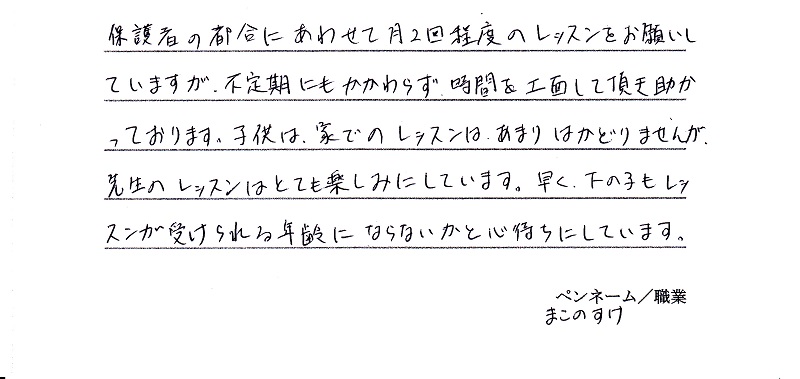 保護者の都合にあわせて月2回程度のレッスンをお願いし
ていますが、不定期にもかかわらず、時間を工面して頂き助か
っております。子供は、家でのレッスンは、あまりはかどりませんが、
先生のレッスンはとても楽しみにしています。早く、下の子もレッ
スンが受けられる年齢にならないかと心待ちにしています。
ペンネーム/職業
まこのすけ